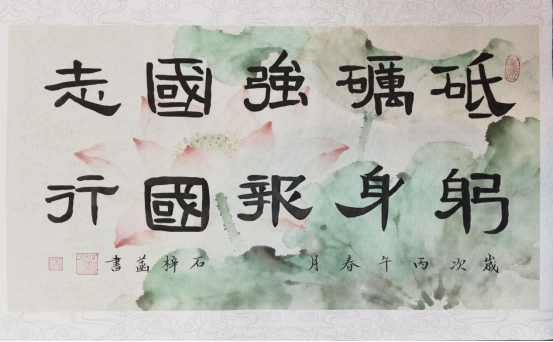 砥礪強國志
躬身報國行
歲次丙午春月 石梓菡書